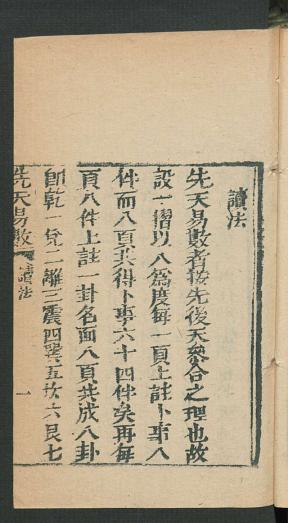 讀法
先天易數者按先後天叅合之理也故
設一摺以八爲度每一頁上註卜事八
件而八頁共得卜事六十四件矣再每
頁八件上註一卦名面八頁共成八卦
卽乾一兌二離三震四巽五坎六艮七
先天易數 讀法 一